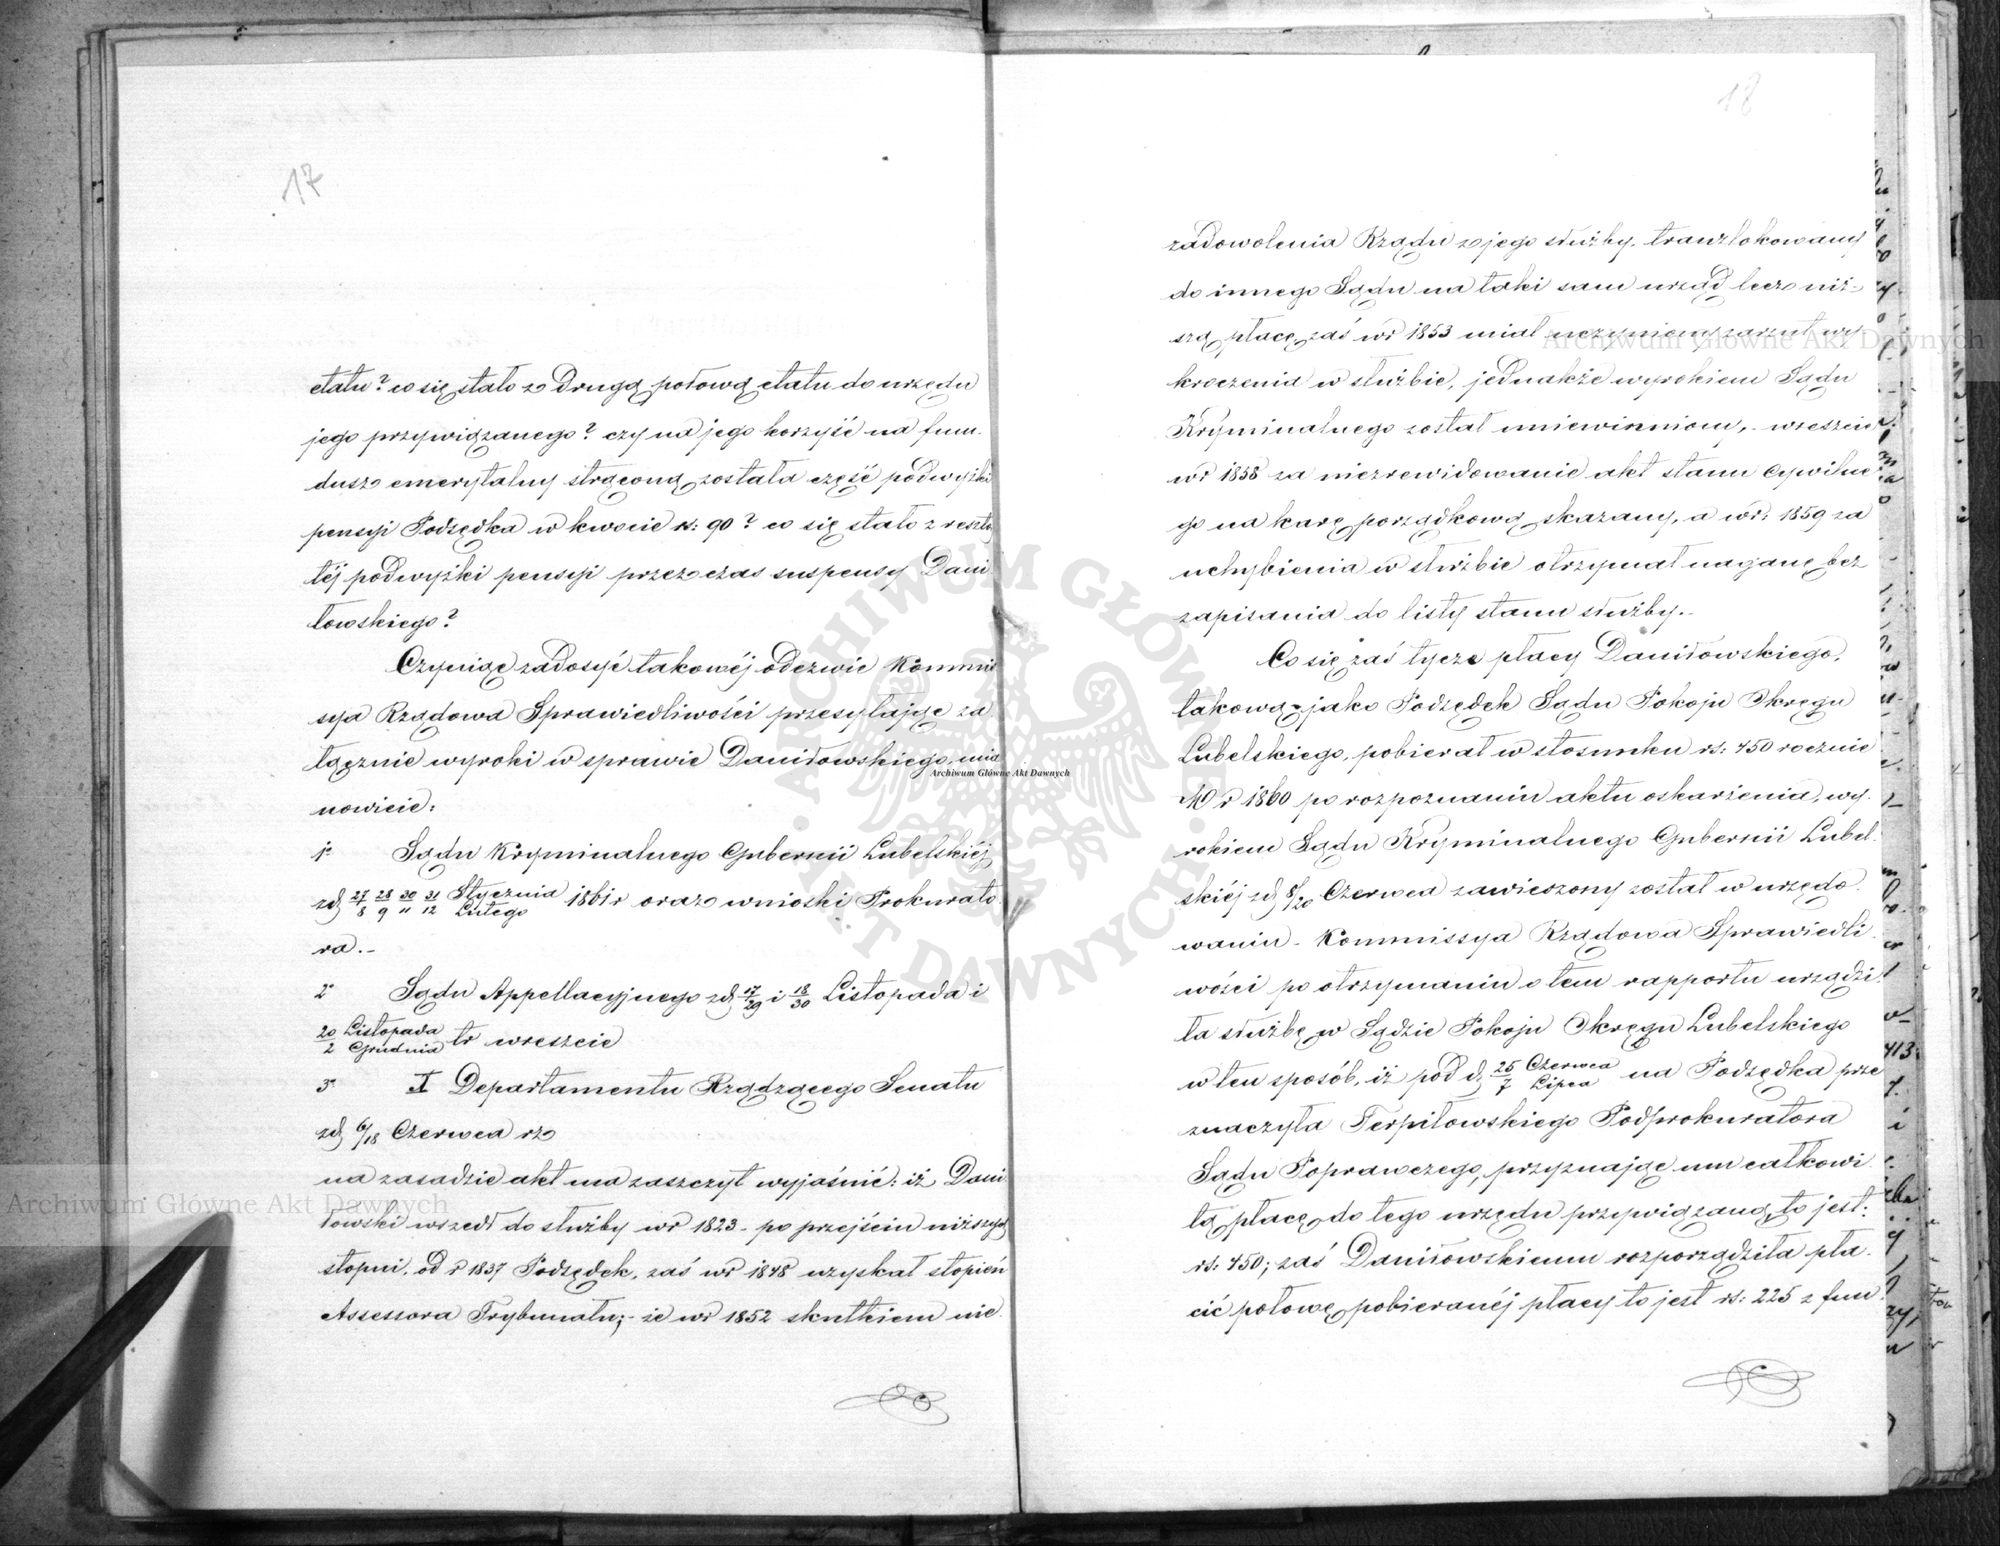 17
etatu? co się stało z Drugą połową etatu do urzędu
jego przywiązanego? czy na jego korzyść na fun-
dusz emerytalny strąconą została część podwyżki
pensyi Podsędka w kwocie rs: 90? co się stało z resztą
téj podwyżki pensyi przez czas suspensy Dani
łowskiego?
Czyniąc zadosyć takowéj odezwie Kommis
sya Rządowa Sprawiedliwości przesyłając za
łącznie wyroki w sprawie Daniłowskiego, mia
nowicie:
1º Sądu Kryminalnego Gubernii Lubelskiéj
zd. 27/8 28/9 30/11 31/12 Stycznia/Lutego 1861 r oraz wnioski Prokurato
ra.-
2º Sądu Appellacyjnego zd. 17/29 i 18/30 Listopada i
20/2 Listopada/Grudnia tr wreszcie
3º X Departamentu Rządzącego Senatu
zd. 6/18 Czerwca rz
na zasadzie akt ma zaszczyt wyjaśnić: iż Dani-
łowski wszedł do służby wr 1823 - po przejściu niższych
stopni, od r 1837 Podsędek, zaś wr 1848 uzyskał stopień
Assessora Trybunału; - że wr 1852 skutkiem nie-
18
zadowolenia Rządu z jego służby, tranzlokowany
do innego Sądu na taki sam urząd lecz niż-
szą płacę, zaś wr 1853 miał uczyniony zarzut wy
kroczenia w służbie, jednakże wyrokiem Sądu
Kryminalnego został uniewinniony, - wreszcie
wr 1858 za niezrewidowanie akt stanu cywilne
go na karę porządkową skazany, a wr: 1859 za
uchybienia w służbie otrzymał naganę bez
zapisania do listy stanu służby.-
Co się zaś tycze płacy Daniłowskiego,
takową jako Podsędek Sądu Pokoju Okręgu
Lubelskiego, pobierał w stosunku rs: 450 rocznie
W r 1860 po rozpoznaniu aktu oskarżenia, wy-
rokiem Sądu Kryminalnego Gubernii Lubel-
skiéj zd. 8/20 Czerwca zawieszony został w urzędo-
waniu - Kommissya Rządowa Sprawiedli-
wości po otrzymaniu o tem rapportu urządzi-
ła służbę w Sądzie Pokoju Okręgu Lubelskiego
w ten sposób, iż pod d. 25/7 Czerwca/Lipca na Podsędka prze
znaczyła Terpiłowskiego Podprokuratora
Sądu Poprawczego, przyznając mu całkowi-
tą płacę do tego urzędu przywiązaną, to jest:
rs: 450; zaś Daniłowskiemu rozporządziła pła-
cić połowę pobieranéj płacy to jest rs: 225 z fun-
ARCHIWUM GŁÓWNE AKT DAWNYCH
Archiwum Główne Akt Dawnych
Archiwum Główne Akt Dawnych
Archiwum Główne Akt Dawnych